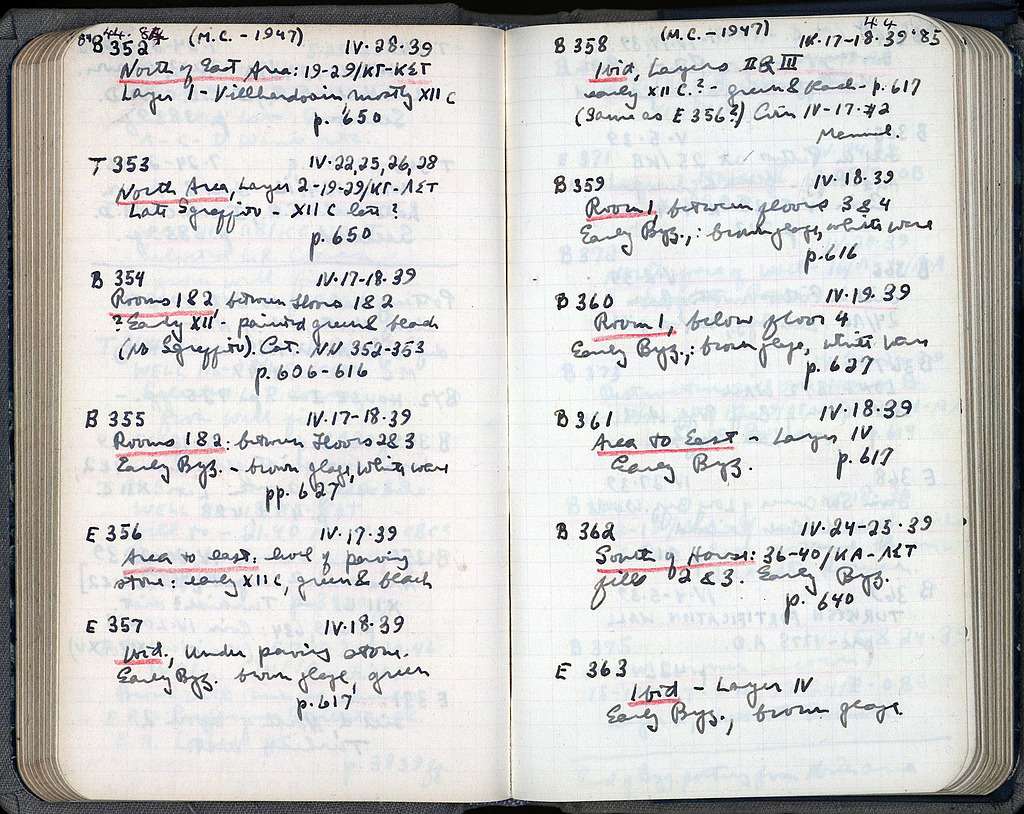 84 44. 84 (M.C. - 1947)
B 352 IV·28·39
North of East Area: 19-29/KΓ-KΣT
Layer 1 - Villhardouin, mostly XII C
p. 650
T 353 IV·22,25,26,28
North Area, Layer 2-19-29/KΓ-ΛΣT
Late Sgraffito - XII C late?
p. 650
B 354 IV·17-18·39
Rooms 1&2, between floors 1&2
? Early XII - painted green & black
(No Sgraffito). Cat: NN 352-353
p. 606-616
B 355 IV·17-18·39
Rooms 1&2: between floors 2&3
Early Byz. - brown glaze, white ware
pp. 627
E 356 IV·17·39
Area to east: level of paving
stone: early XII C, green & black
E 357 IV·18·39
Ibid, under paving stone.
Early Byz. brown glaze, green
p. 617
44
(M.C. - 1947) 85
B 358 IV·17-18·39
Ibid, Layers II & III
early XII C.? - green & black - p. 617
(Same as E 356?) Coin IV-17 #2
Manuel.
B 359 IV·18·39
Room 1, between floors 3&4
Early Byz.,: brown glaze, white ware
p. 616
B 360 IV·19·39
Room 1, below floor 4
Early Byz.,: brown glaze, white ware
p. 627
B 361 IV·18·39
Area to East - Layer IV
Early Byz. p. 617
B 362 IV·24-25·39
South of House: 36-40/KA-ΛΣT
fills 2 & 3. Early Byz.
p. 640
E 363
Ibid - Layer IV
Early Byz., brown glaze.